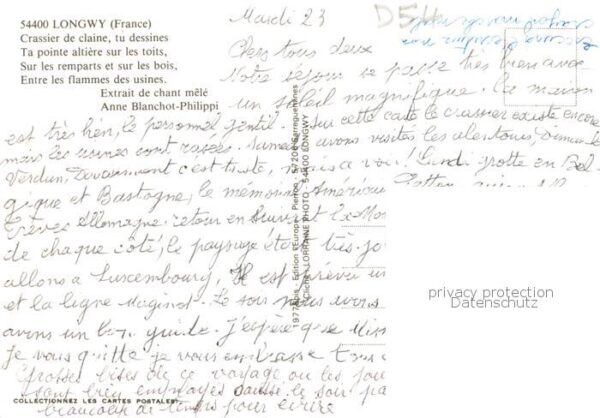 54400 LONGWY (France)
Crassier de claine, tu dessines
Ta pointe altière sur les toits,
Sur les remparts et sur les bois,
Entre les flammes des usines.
Extrait de chant mêlé
Anne Blanchot-Philippi
Mardi 23
D54
Chers tous deux
Notre séjour se passe très bien avec
un soleil magnifique. La maison
est très bien, le personnel gentil. Sur cette carte le crassier existe encore
mais les usines sont rasées. Samedi avons visités les alentours, Dimanche
Verdun, Douaumont c'est triste, mais a voir! Lundi grotte en Bel
gique et Bastogne, le mémorial Américain
Trèves Allemagne retour en suivant la Mo
de chaque côté, le paysage était très jo
allons a Luxembourg, Il est prévu un
et la ligne Maginot. Le soir nous
avons un bon guide. J'espère que
je vous quitte je vous embrasse tous
Grosses bises de ce voyage ou les jou
sont bien employés aussi le soir pa
beaucoup de temps pour écrire
1977 Bis - Edition «Europe» Pierron - 57206 Sarreguemines
Cliché LORRAINE PHOTO - 54400 LONGWY
privacy protection
Datenschutz
COLLECTIONNEZ LES CARTES POSTALES